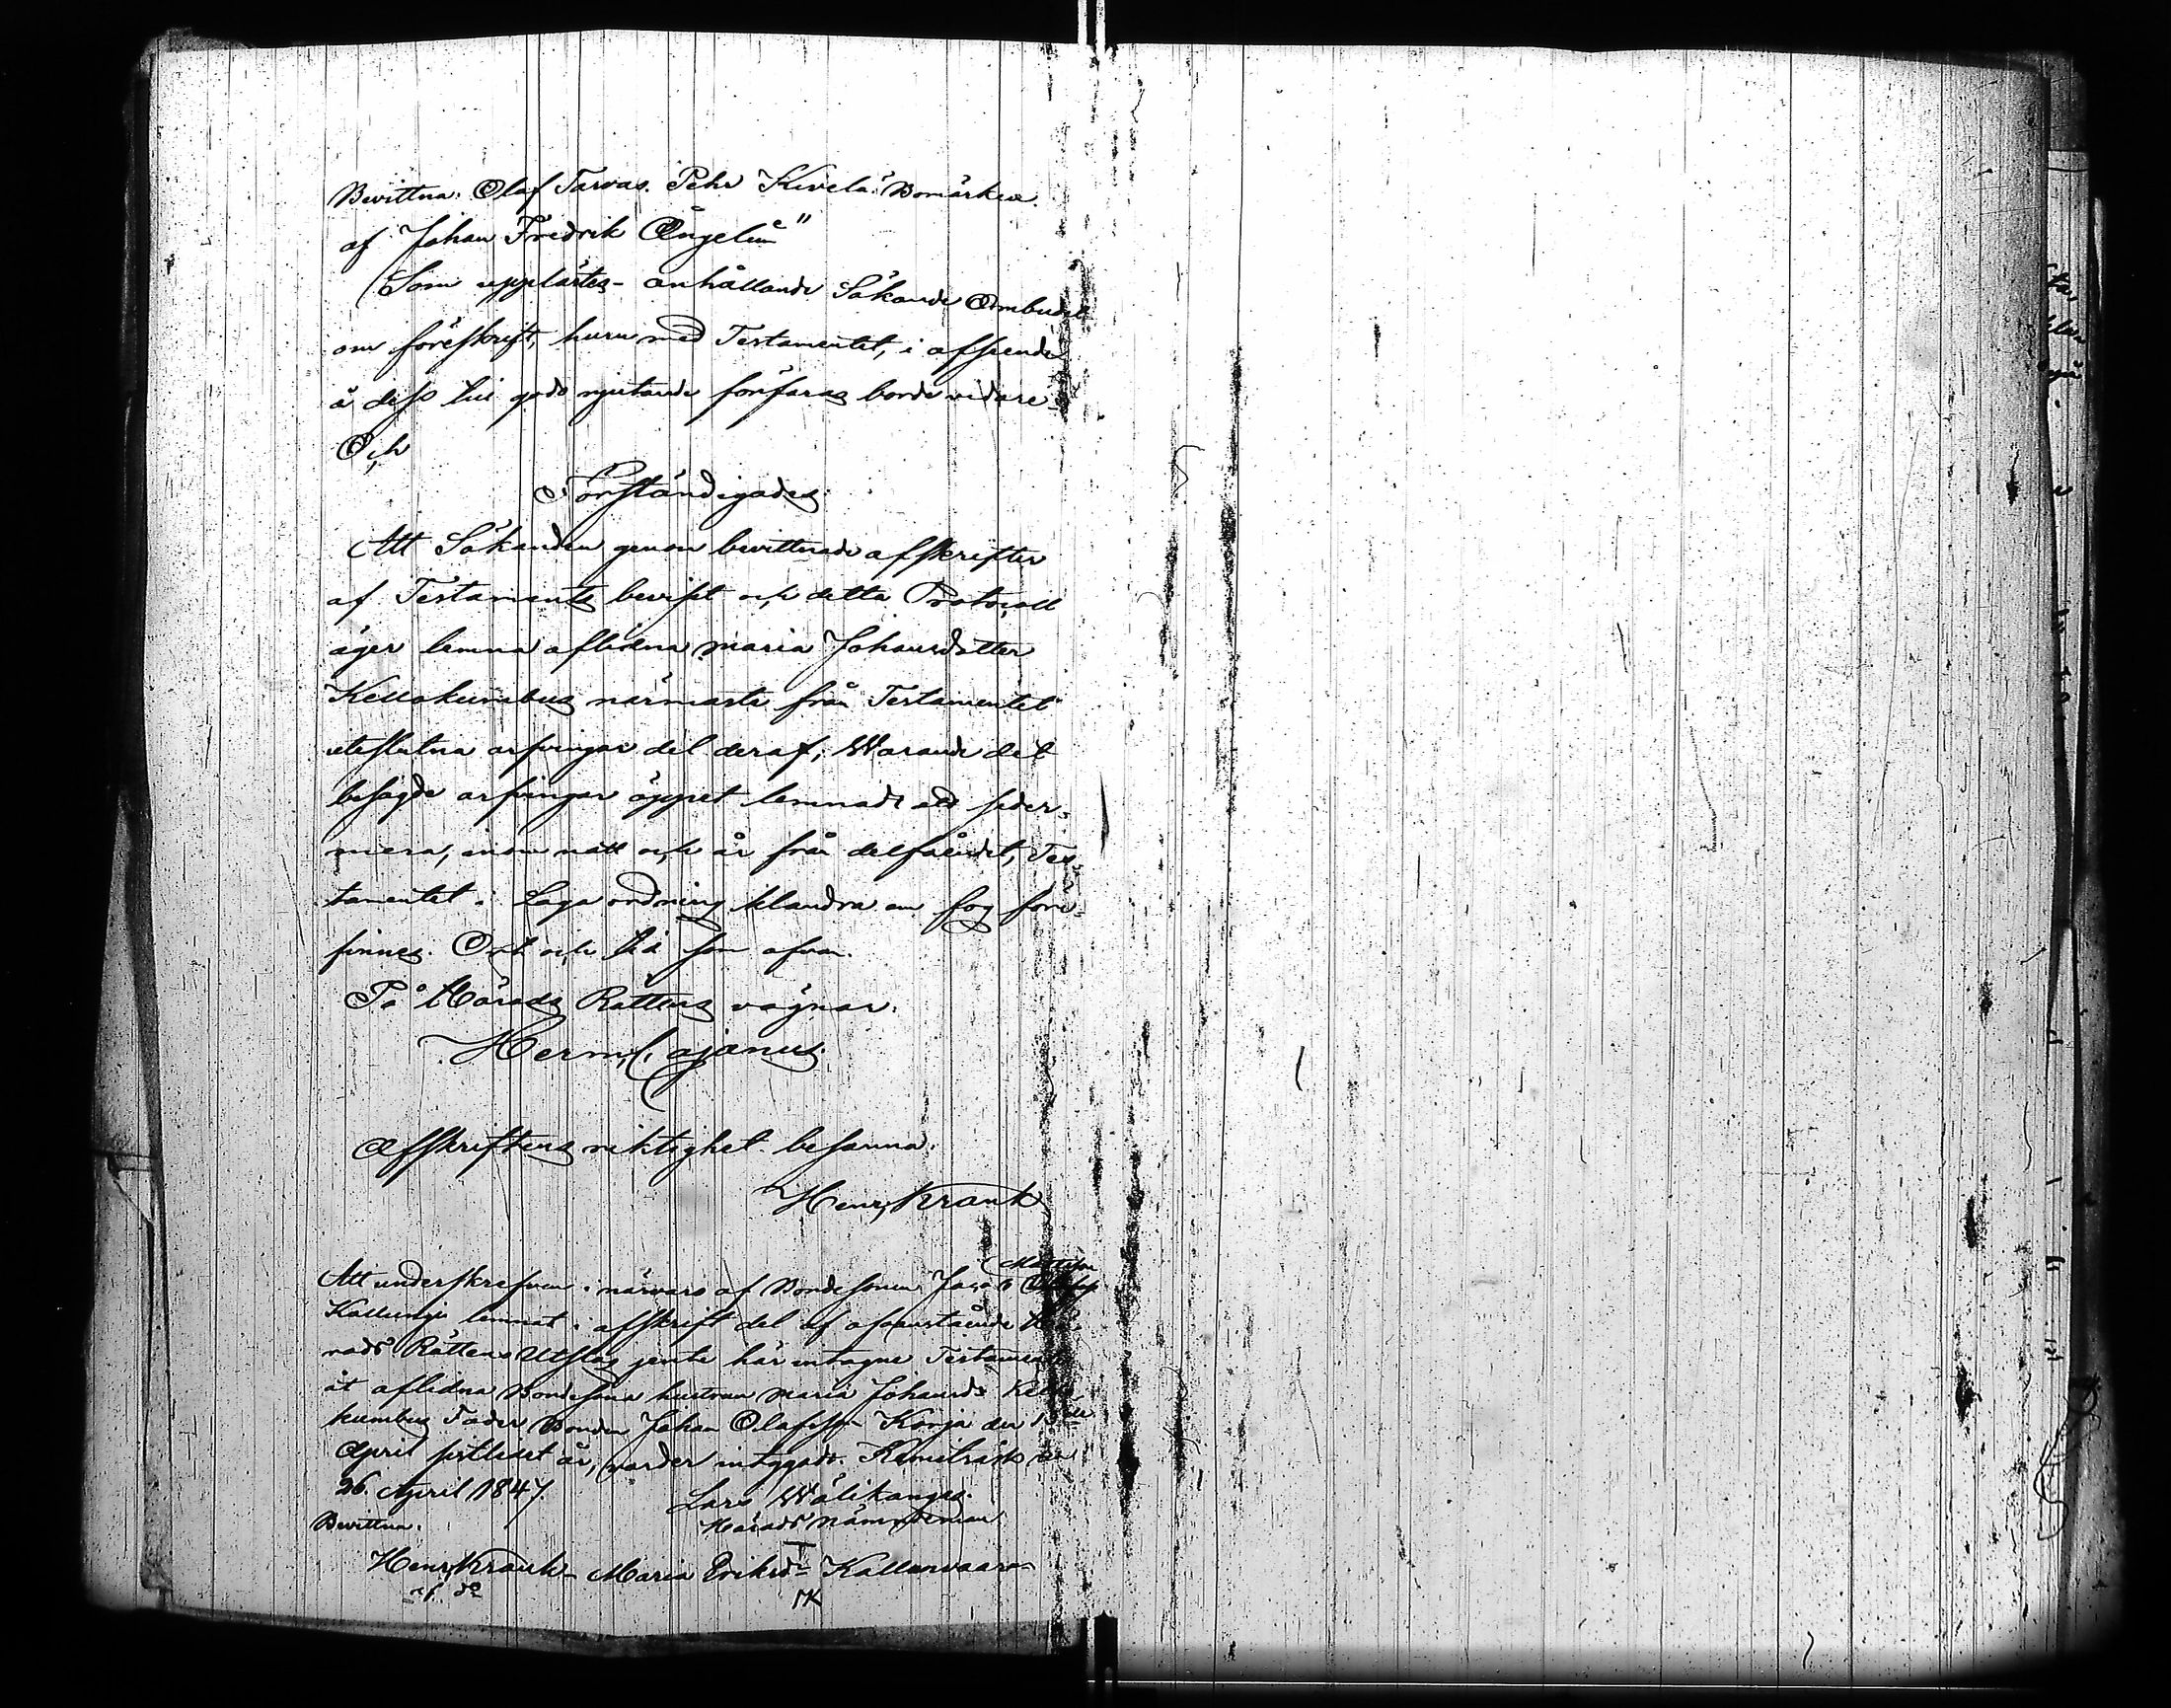 Bevittna: Olaf Tarvas. Pehr Kivelä." Bomärken
af Johan Fredrik Ångelin"
Som upplästes - anhållande Sökande Ombudet
om föreskrift, huru med Testamentet, i afseende
å dess till godo njutande förfaras borde vidare -
Och
Förständigades
Att Sökanden genom bevittnade afskrifter
af Testaments bevist och detta Protocoll
äger lemna aflidna Maria Johansdotter
Kellokumbus närmaste från Testamentet
uteslutna arfvingar del deraf; Warande det
besagde arfvingar öppet lemnadt att seder-
mera, inom natt och år från delfåendet, Tes-
tamentet i Laga ordning klandra om fog före-
finnes. Ort och tid som ofvan.
På Härads Rättens vägnar.
Herm. Cajanus.
Afskriftens riktighet besanna.
Henr. Krank
Mattsson
Att underskrefven i närvaro af Bondesonen Jacob
Kallungi lemnat i afskrift del af ofvanstående Hä-
rads Rättens Utslag jemte här intagne Testament
åt aflidna Bondesona hustrun Maria Johansd:r Kello
kumbus Fader Bonden Johan Olafsson Korja den
April sistledet år, varder intygadt. Kemiträsk den
26. April 1847.
Lars Wälikangas.
Bevittna.
Härads Nämndeman
Henr. Krank - Maria Eriksd:r Kallanvaara
MK